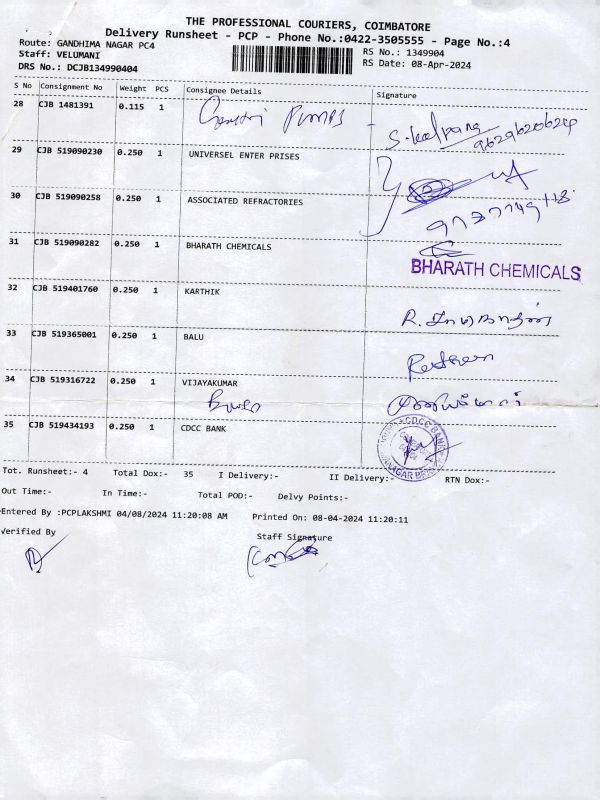 THE PROFESSIONAL COURIERS, COIMBATORE
Delivery Runsheet - PCP - Phone No.:0422-3505555 - Page No.:4
Route: GANDHIMA NAGAR PC4
RS No.: 1349904
Staff: VELUMANI
RS Date: 08-Apr-2024
DRS No.: DCJB134990404
S No Consignment No Weight PCS Consignee Details Signature
28 CJB 1481391 0.115 1 PUMPS S. kalpana
9629620624
29 CJB 519090230 0.250 1 UNIVERSEL ENTER PRISES
30 CJB 519090258 0.250 1 ASSOCIATED REFRACTORIES
31 CJB 519090282 0.250 1 BHARATH CHEMICALS
BHARATH CHEMICALS
32 CJB 519401760 0.250 1 KARTHIK
33 CJB 519365001 0.250 1 BALU
34 CJB 519316722 0.250 1 VIJAYAKUMAR
35 CJB 519434193 0.250 1 CDCC BANK
CDCC BANK
Tot. Runsheet:- 4 Total Dox:- 35 I Delivery:- II Delivery:- RTN Dox:-
Out Time:- In Time:- Total POD:- Delvy Points:-
Entered By :PCPLAKSHMI 04/08/2024 11:20:08 AM Printed On: 08-04-2024 11:20:11
Verified By Staff Signature